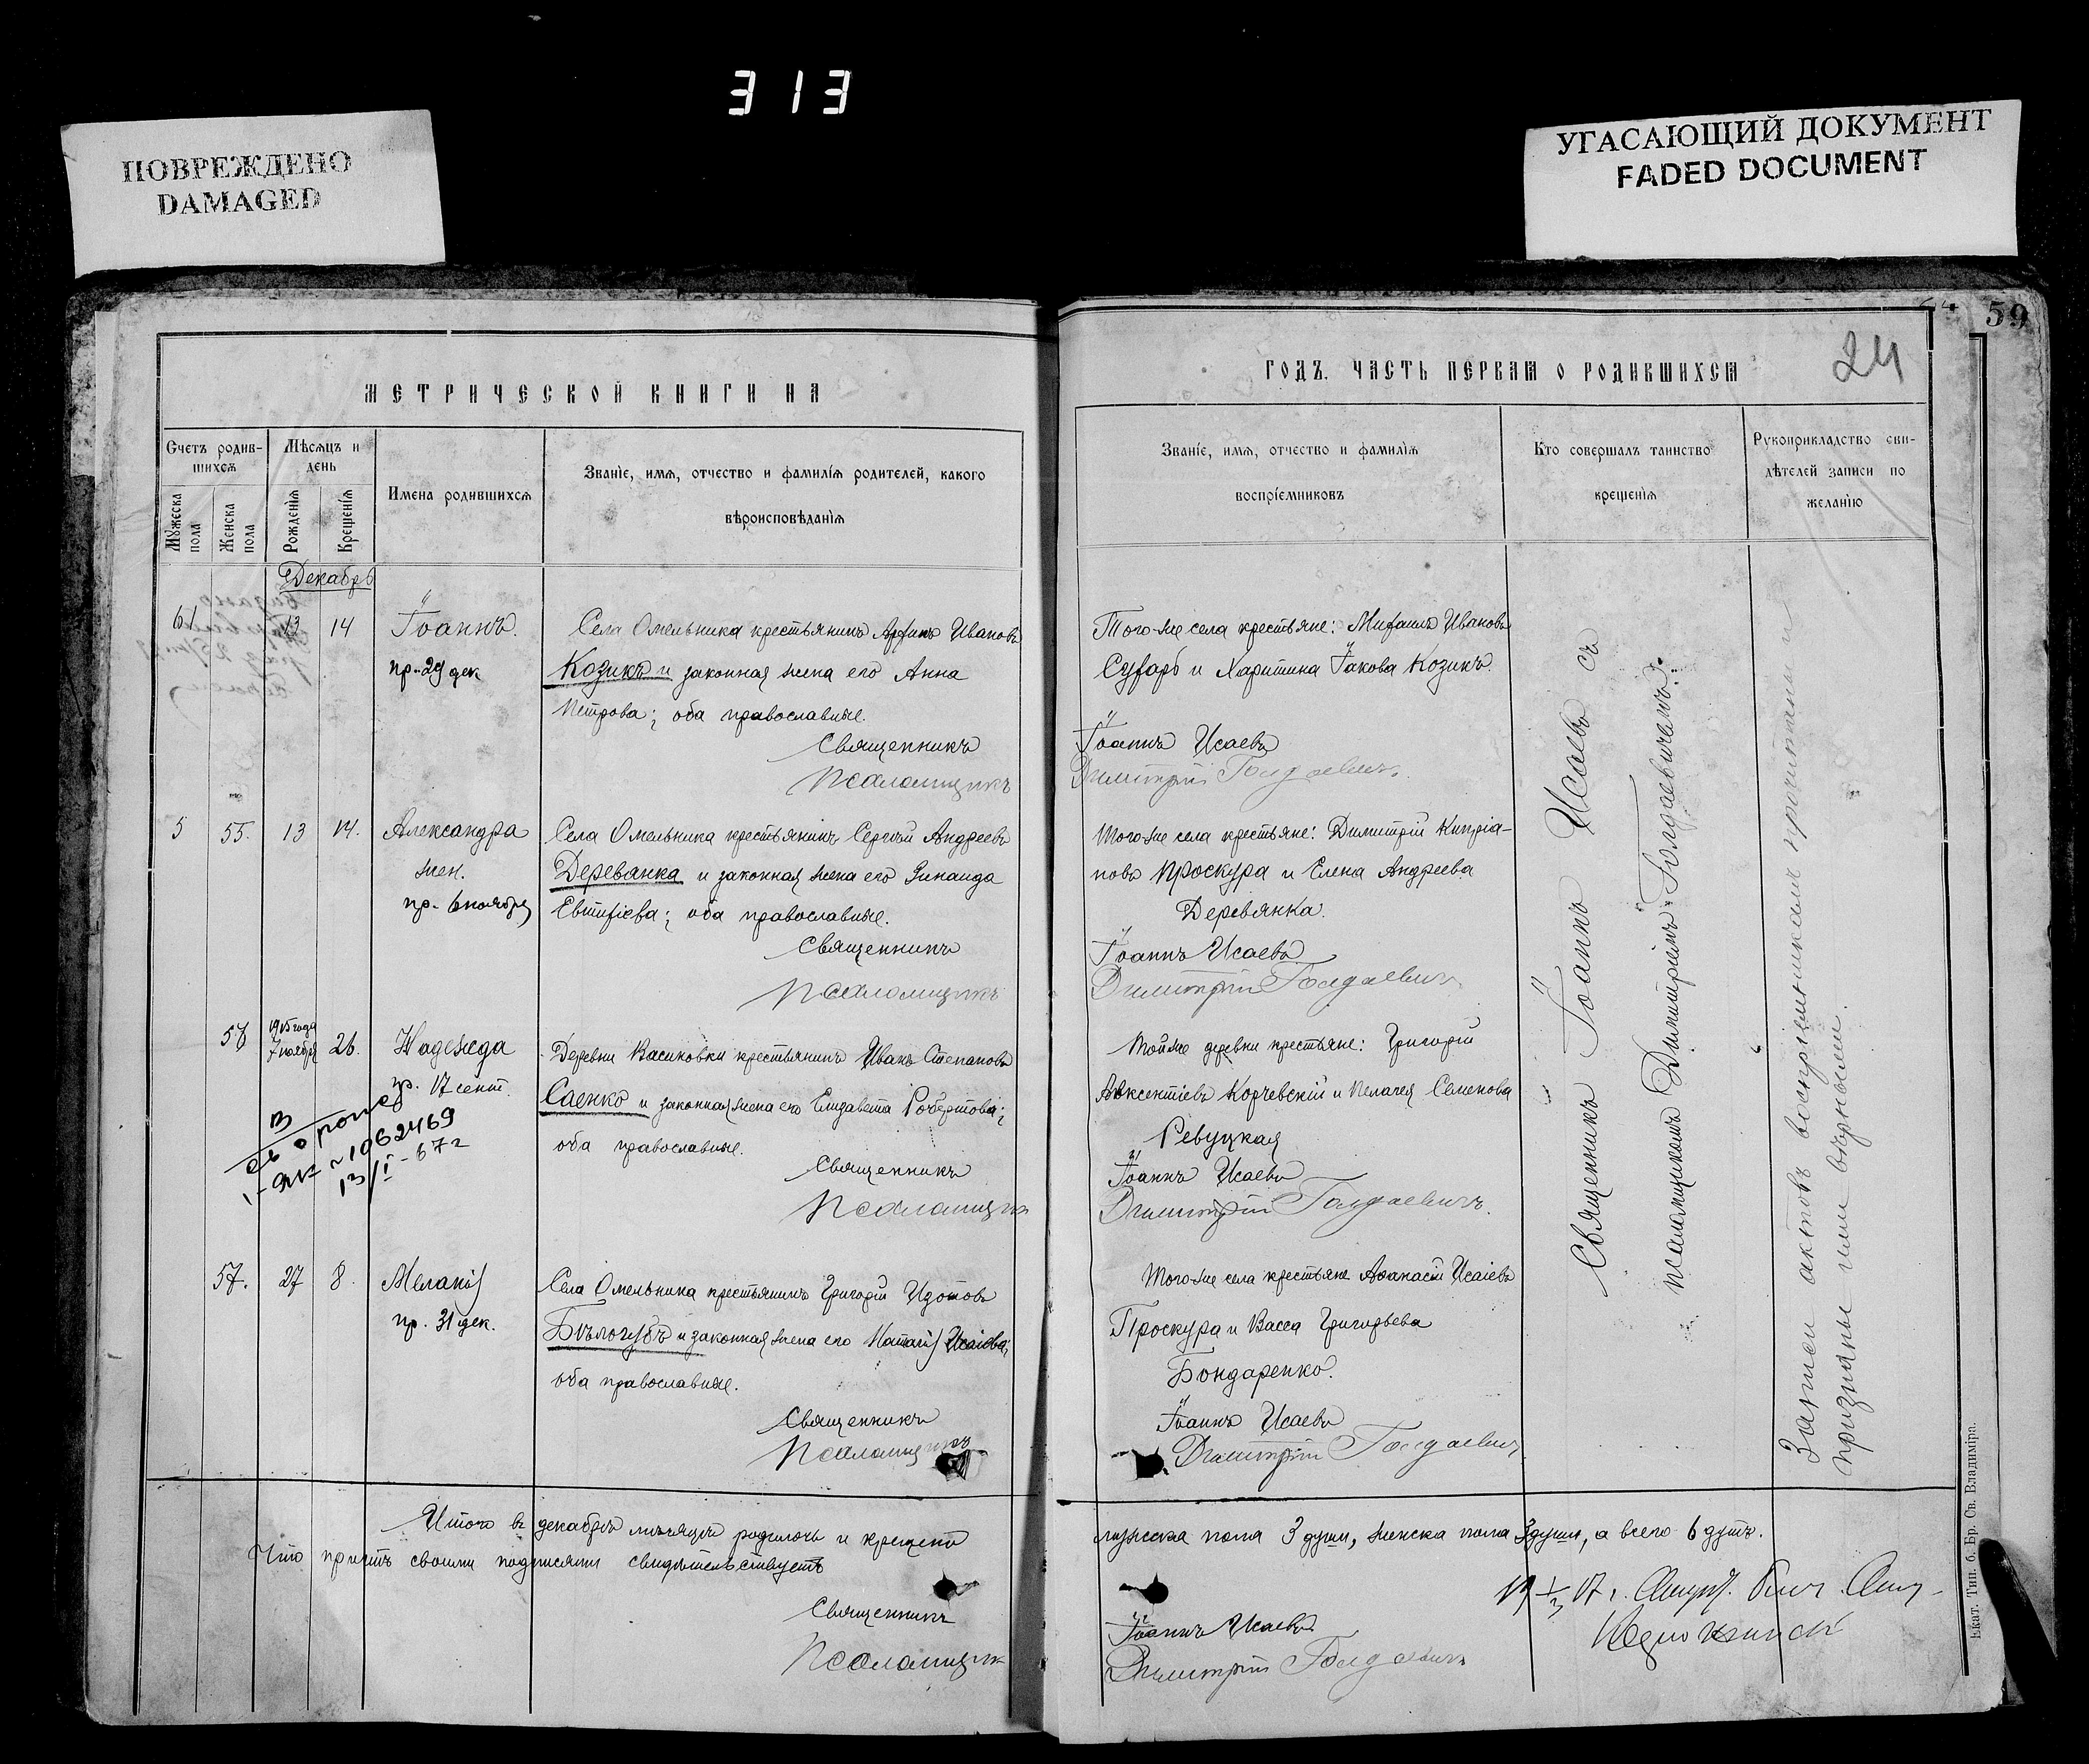 313
ПОВРЕЖДЕНО
DAMAGED
УГАСАЮЩИЙ ДОКУМЕНТ
FADED DOCUMENT
59
24
МЕТРИЧЕСКОЙ КНИГИ НА
ГОДЪ. ЧАСТЬ ПЕРВАЯ О РОДИВШИХСЯ
Счетъ родив-
шихся
Мѣсяцъ и
день
Мужеска
пола
Женска
пола
Рожденія
Крещенія
Имена родившихся
Званіе, имя, отчество и фамилія родителей, какого
вѣроисповѣданія
Званіе, имя, отчество и фамилія
воспріемниковъ
Кто совершалъ таинство
крещенія
Рукоприкладство сви-
дѣтелей записи по
желанію
Декабрь
61 13 14 Іоаннъ.
пр. 29 дек
Села Омельника крестьянинъ Ивановъ
Козикъ и законная жена его Анна
Петрова; оба православные.
Священникъ
Псаломщикъ
Того-же села крестьяне: Михаилъ Ивановъ
Сухарь и Харитина Іакова Козикъ.
Іоаннъ Исаевъ
Димитрій Голдаевичъ.
5 55. 13 14. Александра
жен.
пр. 6 ноября
Села Омельника крестьянинъ Сергѣй Андреевъ
Деревянка и законная жена его Зинаида
Евтихіева; оба православные.
Священникъ
Псаломщикъ
Того-же села крестьяне: Димитрій Кипріа-
новъ Проскура и Елена Андреева
Деревянка.
Іоаннъ Исаевъ
Димитрій Голдаевичъ
56 1915 года
7 ноября 26. Надежда
пр. 17 сент.
Деревни Васиковки крестьянинъ Иванъ Степановъ
Саенко и законная жена его Елизавета Робертова;
оба православные.
Священникъ
Псаломщикъ
Той-же деревни крестьяне: Григорій
Авксентіевъ Корчевскій и Пелагея Семенова
Ревуцкая
Іоаннъ Исаевъ
Димитрій Голдаевичъ.
№ 1062469
13/I-67 г
57. 27 8. Меланія
пр. 31 дек.
Села Омельника крестьянинъ Григорій Изотовъ
Бѣлогубъ и законная жена его Наталія Исаіева;
оба православные.
Священникъ
Псаломщикъ
Того-же села крестьяне Аѳанасій Исаіевъ
Проскура и Васса Григорьева
Бондаренко.
Іоаннъ Исаевъ
Димитрій Голдаевичъ
Священникъ Іоаннъ Исаевъ съ
псаломщикомъ Димитріемъ Голдаевичемъ.
Записи актовъ воспріемниками прочитаны и
признаны ими вѣрными.
Итого въ декабрѣ мѣсяцѣ родилось и крещено
мужеска пола 3 души, женска пола 3 души, а всего 6 душъ.
Что причтъ своими подписями свидѣтельствуетъ
Священникъ
Псаломщикъ
Іоаннъ Исаевъ
Димитрій Голдаевичъ
Екат. Тип. б. Бр. Св. Владиміра.